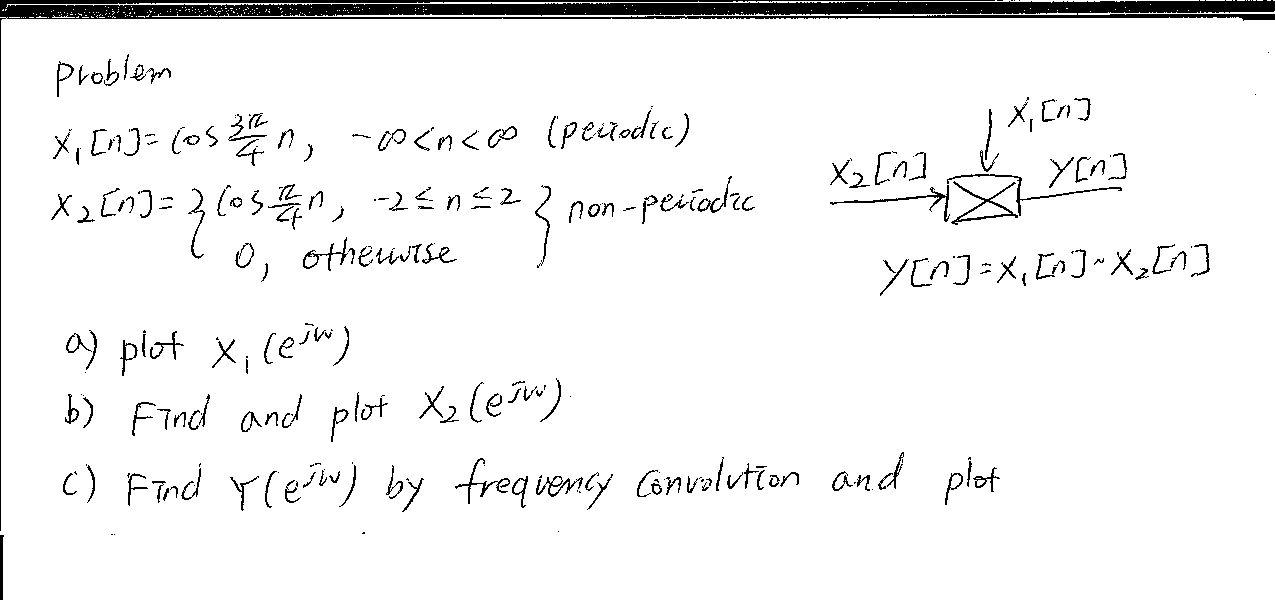 Problem
X₁[n]= cos 3π/4 n, -∞<n<∞ (periodic)
X₂[n]= { cos π/4 n, -2≤n≤2 } non-periodic
0, otherwise
X₁[n]
X₂[n] Y[n]
Y[n]=X₁[n]·X₂[n]
a) plot X₁(e^jw)
b) Find and plot X₂(e^jw)
c) Find Y(e^jw) by frequency convolution and plot